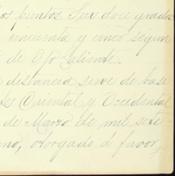 os puntos Sur doce grados
cincuenta y cinco segun
de Ojo Caliente
distancia sirve de base
Oriental y Occidental
de Marzo de mil sete
no, otorgado á favor